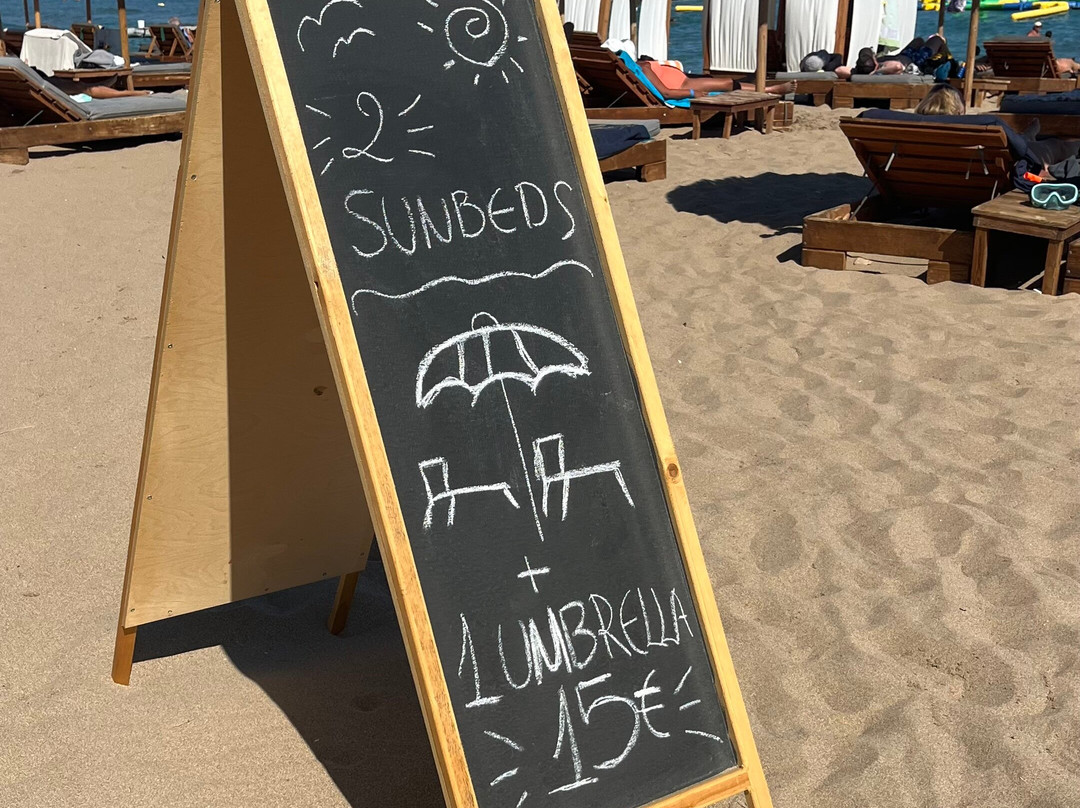 2
SUNBEDS
+
1 UMBRELLA
15€